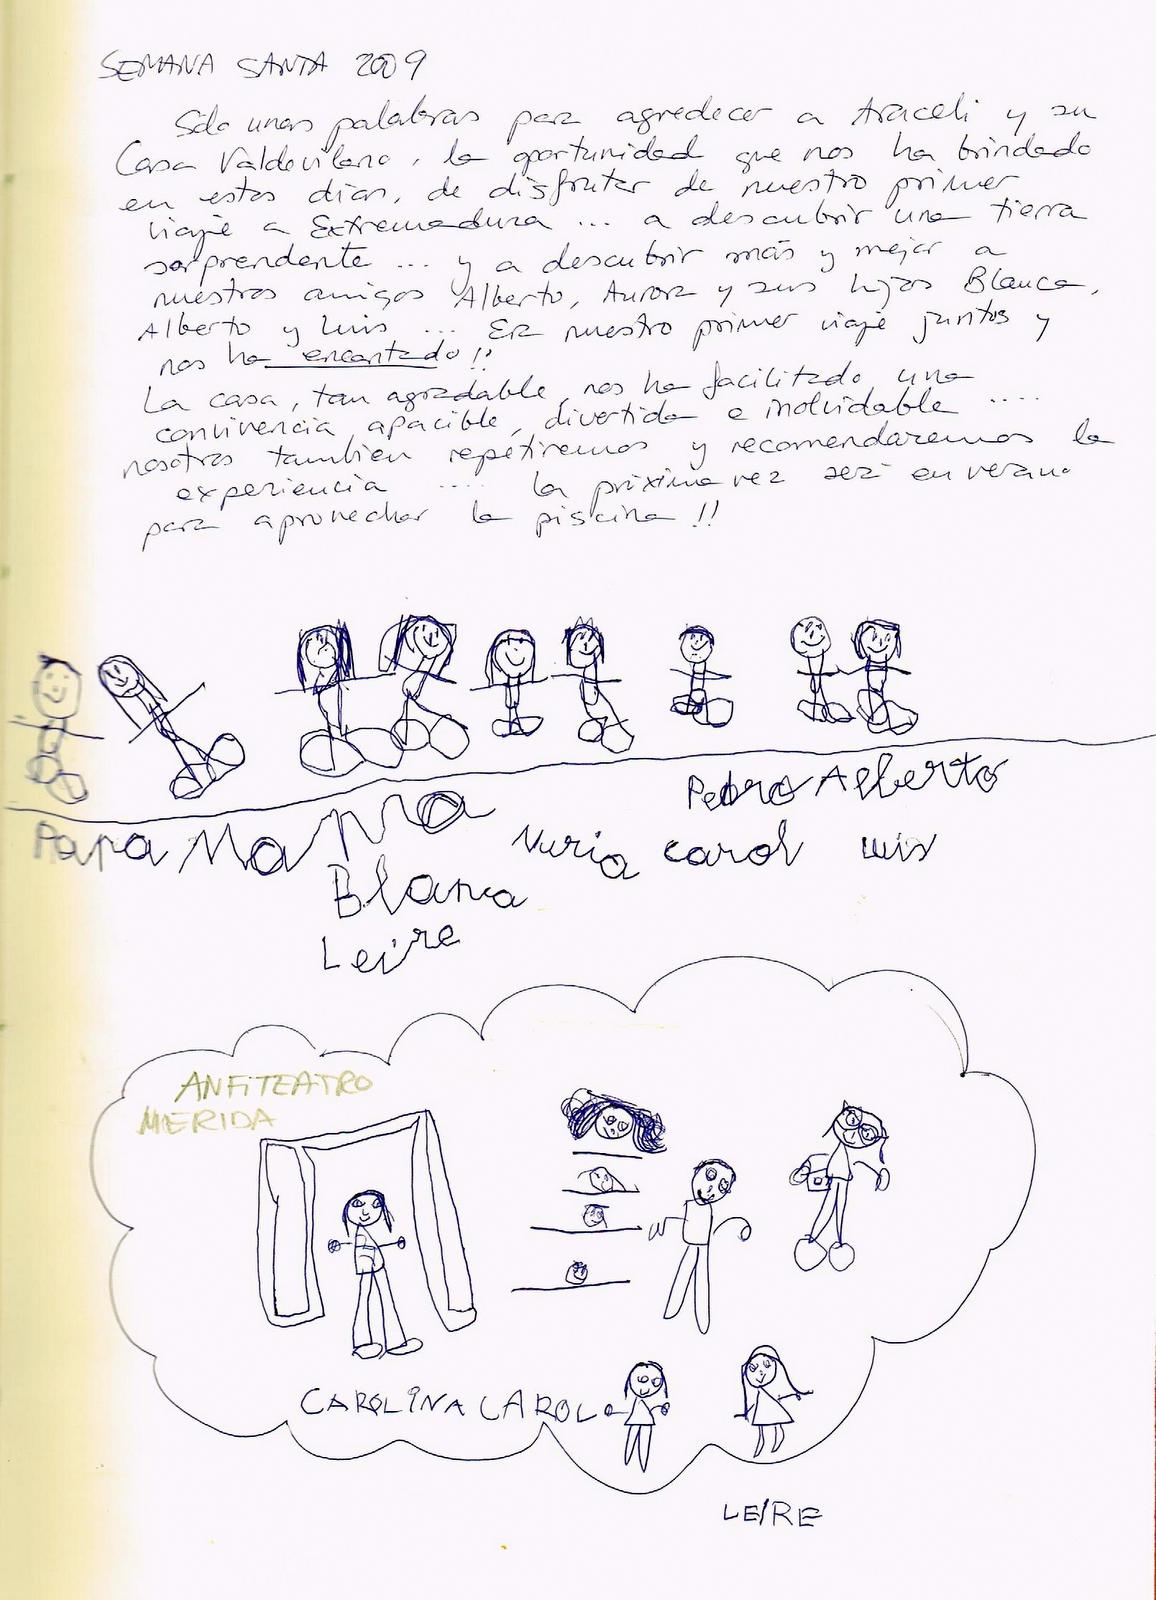 SEMANA SANTA 2009
Sólo unas palabras para agredecer a Araceli y su
Casa Valdovilano, la oportunidad que nos ha brindado
en estos días, de disfrutar de nuestro primer
viaje a Extremadura ... a descubrir una tierra
sorprendente ... y a descubrir más y mejor a
nuestros amigos Alberto, Aurora y sus hijos Blanca,
Alberto y Luis ... Era nuestro primer viaje juntos y
nos ha encantado!!
La casa, tan agradable, nos ha facilitado una
convivencia apacible, divertida e inolvidable ....
nosotros también repetiremos y recomendaremos la
experiencia .... la próxima vez será en verano
para aprovechar la piscina!!
Pedro Alberto
Papa Mama
Nuria Carol Luis
Blanca
Leire
ANFITEATRO
MERIDA
CAROLINA CAROL
LEIRE